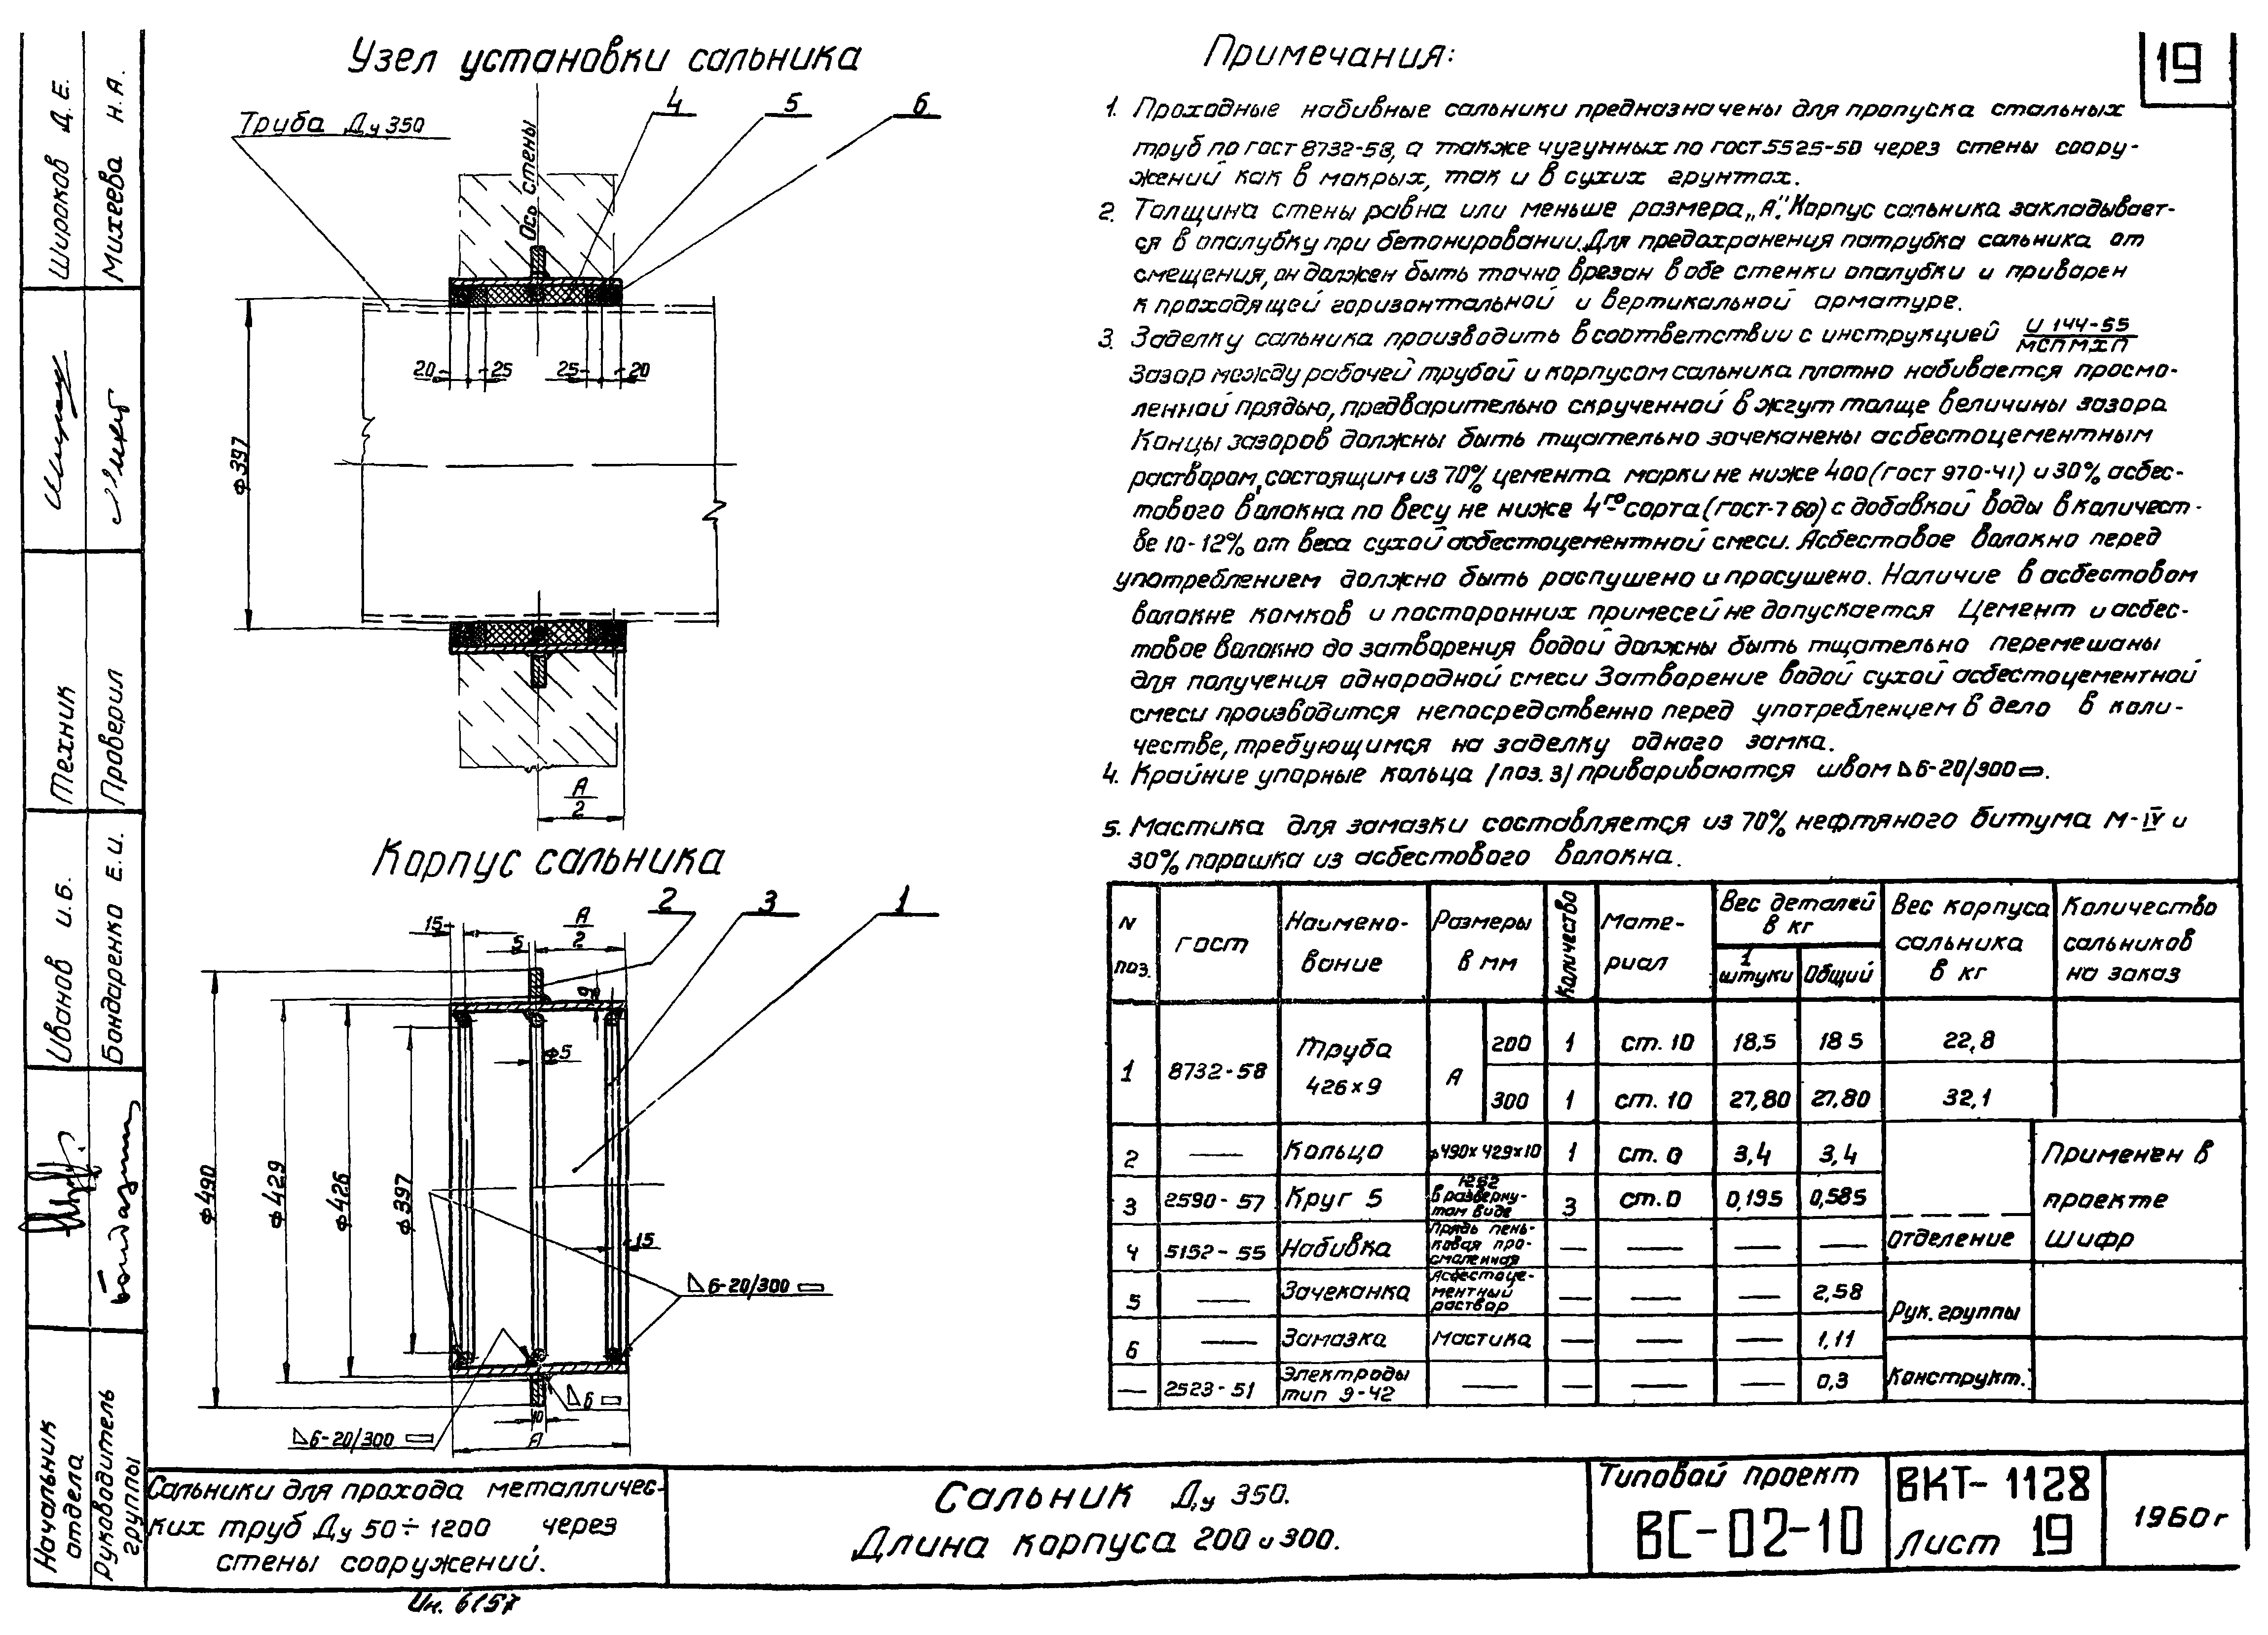 19
Узел установки сальника
Труба Ду 350
Ось стены
4
5
6
20
25
25
20
ф397
А
2
Корпус сальника
2
3
1
15
5
А
2
9
ф5
ф490
ф429
ф426
ф397
15
6-20/300
6
6-20/300
10
А
Примечания:
1. Проходные набивные сальники предназначены для пропуска стальных
труб по гост 8732-58, а также чугунных по гост 5525-50 через стены соору-
жений как в мокрых, так и в сухих грунтах.
2. Толщина стены равна или меньше размера „А". Корпус сальника закладывает-
ся в опалубку при бетонировании. Для предохранения патрубка сальника от
смещения, он должен быть точно врезан в обе стенки опалубки и приварен
к проходящей горизонтальной и вертикальной арматуре.
3. Заделку сальника производить в соответствии с инструкцией И 144-55
МСПМХП
Зазор между рабочей трубой и корпусом сальника плотно набивается просмо-
ленной прядью, предварительно скрученной в жгут толще величины зазора
Концы зазоров должны быть тщательно зачеканены асбестоцементным
раствором, состоящим из 70% цемента марки не ниже 400 (гост 970-41) и 30% асбес-
тового волокна по весу не ниже 4го сорта (гост-7 60) с добавкой воды в количест-
ве 10-12% от веса сухой асбестоцементной смеси. Асбестовое волокно перед
употреблением должно быть распушено и просушено. Наличие в асбестовом
волокне комков и посторонних примесей не допускается Цемент и асбес-
товое волокно до затворения водой должны быть тщательно перемешаны
для получения однородной смеси Затворение водой сухой асбестоцементной
смеси производится непосредственно перед употреблением в дело в коли-
честве, требующимся на заделку одного замка.
4. Крайние упорные кольца /поз. 3/ привариваются швом 6-20/300.
5. Мастика для замазки составляется из 70% нефтяного битума М-IV и
30% порошка из асбестового волокна.
N поз. гост Наимено-вание Размеры в мм Количество Мате-риал Вес деталей в кг 1 штуки Общий Вес корпуса сальника в кг Количество сальников на заказ
1 8732-58 Труба 426×9 А 200 1 ст. 10 18,5 18 5 22,8
300 1 ст. 10 27,80 27,80 32,1
2 — Кольцо ф490×429×10 1 ст. 0 3,4 3,4
3 2590-57 Круг 5 1262 в разверну-том виде 3 ст. 0 0,195 0,585
4 5152-55 Набивка Прядь пень-ковая про-смоленная — — — —
5 — Зачеканка Асбестоце-ментный раствор — — — 2,58
6 — Замазка мастика — — — 1,11
— 2523-51 Электроды тип Э-42 — — — — 0,3
Применен в
проекте
Шифр
Отделение
Рук. группы
Конструкт.
Сальники для прохода металличес-
ких труб Ду 50÷1200 через
стены сооружений.
Сальник Ду 350.
Длина корпуса 200 и 300.
Типовой проект
ВС-02-10
ВКТ-1128
Лист 19
1960 г
Ин. 6157
Широков Д. Е.
Михеева Н. А.
Техник
Проверил
Иванов И. Б.
Бондаренко Е. И.
Начальник
отдела
Руководитель
группы